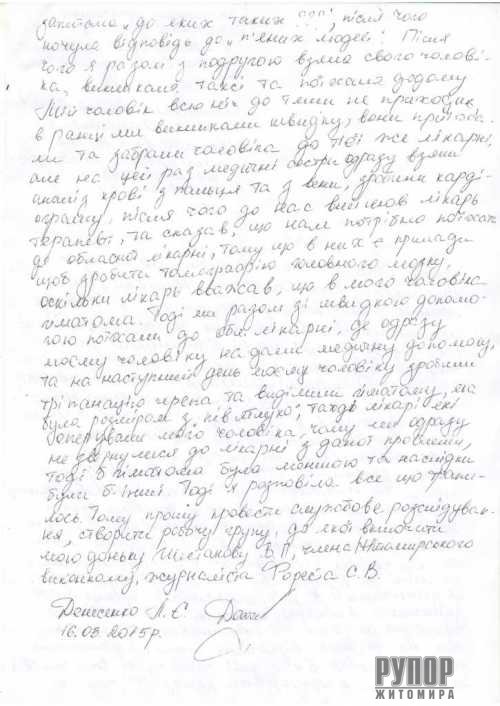 запитала „до яких таких???", після чого
почула відповідь до „п'яних людей! Після
чого я разом з подругою взяла свого чолові-
ка, викликала таксі та поїхала додому
Мій чоловік всю ніч до тями не приходив,
в ранці ми викликали швидку, вони приїха-
ли та забрали чоловіка до тої же лікарні,
але на цей раз медичні сестри одразу взяли
аналіз крові з пальця та з вени, зробили карді-
ограму, після чого до нас вийшов лікарь
терапевт, та сказав, що нам потрібно поїхать
до обласної лікарні, тому що в них є прилади
щоб зробити томографію головного мозку,
оскільки лікарь вважав, що в мого чоловіка
гіматома. Тоді ми разом зі швидкою допомо-
гою поїхали до обл. лікарні, де одразу
моєму чоловіку надали медичну допомогу,
та на наступний день моєму чоловіку зробили
тріпанацію черепа та виділили гіматому, яка
була розміром з „пів яблуко", тоді лікарі які
оперували мого чоловіка, чому ми одразу
не звернулися до лікарні з даної проблеми,
тоді б гіматома була меншою та наслідки
були б інші. Тоді я розповіла все що трапи-
лось. Тому прошу провести службове розслідуван-
ня, створити робочу групу, до якої включити
мою доньку В.П, члена Житомирського
виконкому, журналіста Форсюка С.В.
Денисенко Л.Є.
16.03.2015р.
РУПОР
ЖИТОМИРА